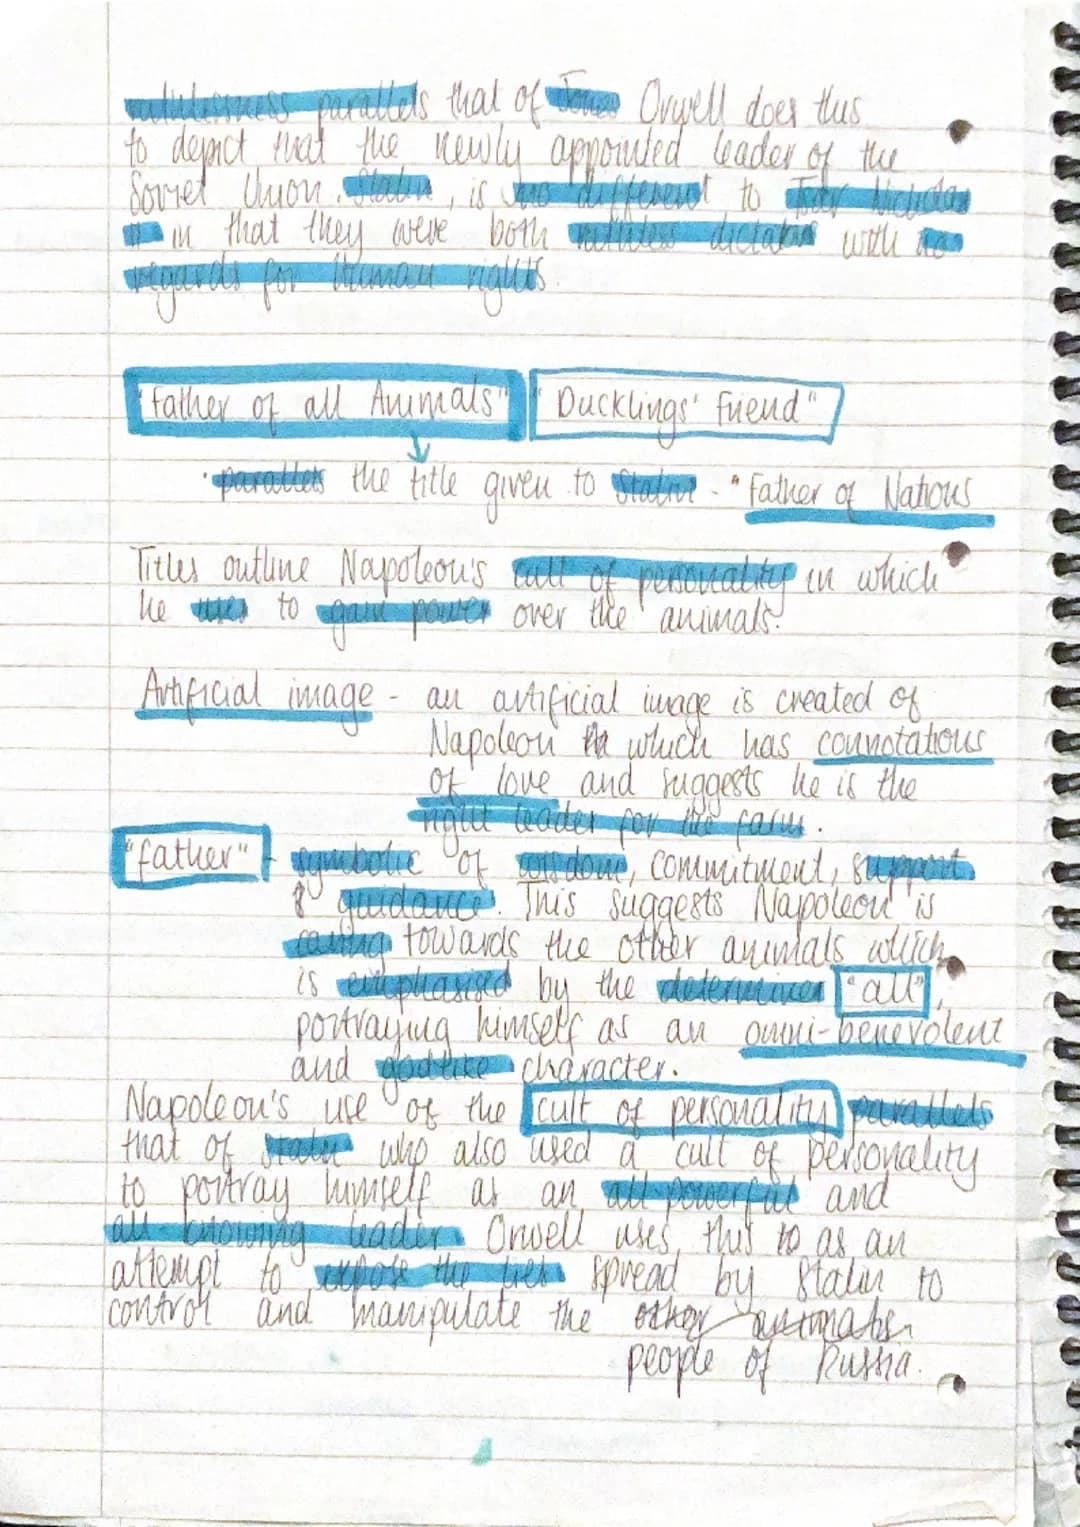 ruthlessness parallels that of Jones Orwell does this
to depict that the newly appointed leader of the
Soviet Union, Stalin, is no different to Tsar Nicholas
II in that they were both ruthless dictators with no
regards for human rights.
"Father of all Animals" "Ducklings' Friend"
· parallels the title given to Stalin - "Father of Nations
Titles outline Napoleon's cult of personality in which
he uses to gain power over the animals.
Artificial image - an artificial image is created of
Napoleon which has connotations
of love and suggests he is the
right leader for the farm.
"father" - symbolic of wisdom, commitment, support
& guidance. This suggests Napoleon is
caring towards the other animals which
is emphasised by the determiner "all",
portraying himself as an omni-benevolent
and godlike character.
Napoleon's use of the cult of personality parallels
that of Stalin who also used a cult of personality
to portray himself as an all powerful and
all knowing leader. Orwell uses this to as an
attempt to expose the lies spread by Stalin to
control and manipulate the other animals.
people of Russia.